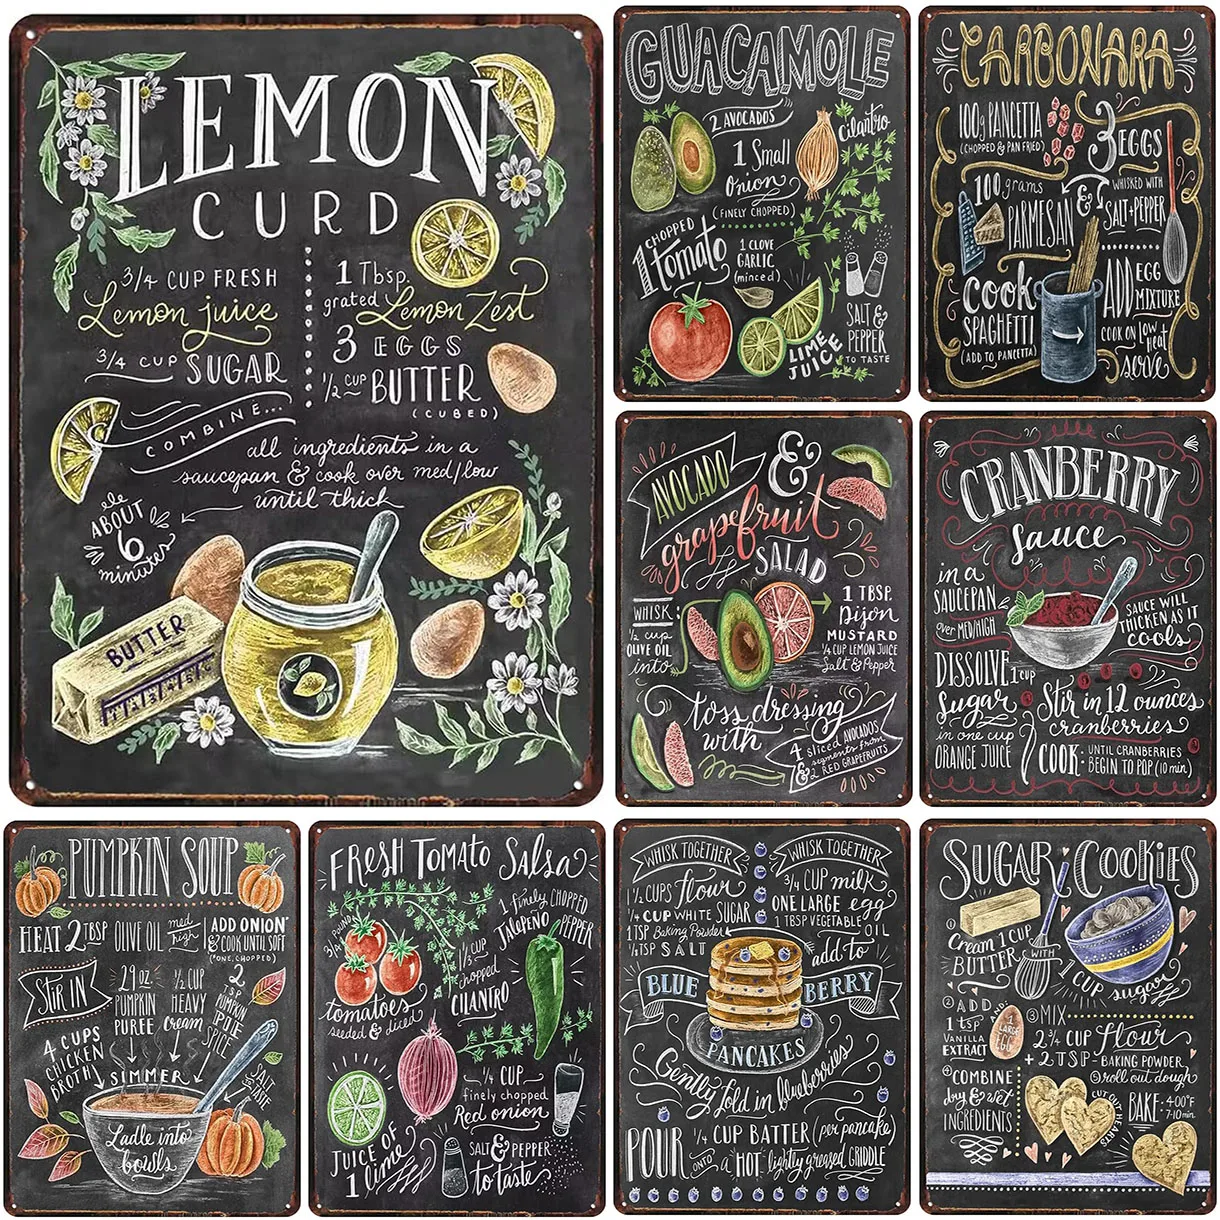 LEMON
CURD
3/4 CUP FRESH
Lemon juice
3/4 CUP SUGAR
1 Tbsp.
grated Lemon Zest
3 EGGS
1/2 CUP BUTTER
(CUBED)
COMBINE...
all ingredients in a
saucepan & cook over med/low
until thick
ABOUT
6
minutes
BUTTER
GUACAMOLE
2 AVOCADOS
Cilantro
1 Small
Onion
(FINELY CHOPPED)
CHOPPED
1 Tomato
1 CLOVE
GARLIC
(minced)
LIME
JUICE
SALT &
PEPPER
TO TASTE
CARBONARA
100g PANCETTA
(CHOPPED & PAN FRIED)
3 EGGS
100 grams
PARMESAN
&
WHISKED WITH
SALT + PEPPER
COOK
SPAGHETTI
(ADD TO PANCETTA)
ADD EGG
MIXTURE
COOK ON low
heat
serve
AVOCADO
&
grapefruit
SALAD
WHISK
1/2 cup
OLIVE OIL
into
1 TBSP.
Dijon
MUSTARD
1/4 CUP LEMON JUICE
Salt & Pepper
toss dressing
with
4 sliced AVOCADOS
& segments from
2 RED GRAPEFRUITS
CRANBERRY
Sauce
in a
SAUCEPAN
over MED/HIGH
SAUCE WILL
THICKEN AS IT
cools
DISSOLVE 1 cup
Sugar
in one cup
ORANGE JUICE
Stir in 12 ounces
cranberries
COOK: UNTIL CRANBERRIES
BEGIN TO POP (10 min)
PUMPKIN SOUP
HEAT 2 TBSP OLIVE OIL med high
ADD ONION*
& COOK UNTIL SOFT
(*ONE, CHOPPED)
STIR IN
29 oz.
PUMPKIN
PUREE
1/2 CUP
HEAVY
Cream
2
TSP
PUMPKIN
PIE
SPICE
4 CUPS
CHICKEN
BROTH
SIMMER
SALT
TO TASTE
Ladle into
bowls
FRESH TOMATO SALSA
3/4 POUND
tomatoes
seeded & diced
1 finely CHOPPED
JALAPEÑO PEPPER
1/3 CUP
chopped
CILANTRO
1/4 CUP
finely chopped
Red onion
JUICE OF
1 lime
SALT & PEPPER
to taste
WHISK TOGETHER
1 1/2 CUPS Flour
1/4 CUP WHITE SUGAR
1 TSP Baking Powder
1/2 TSP SALT
WHISK TOGETHER
3/4 CUP milk
ONE LARGE egg
1 TBSP VEGETABLE OIL
add to
BLUE BERRY
PANCAKES
Gently fold in blueberries
POUR 1/4 CUP BATTER (per pancake)
ONTO a HOT lightly greased GRIDDLE
SUGAR COOKIES
① Cream 1 CUP
BUTTER
WITH
1 CUP sugar
② ADD
1 tsp
VANILLA
EXTRACT
AND
1
LARGE
EGG
③ MIX
2 3/4 CUP flour
+ 2 TSP BAKING POWDER
④ COMBINE
dry & wet
INGREDIENTS
⑤ roll out dough
CUT OUT HEARTS
BAKE 400°F
7-10 min.